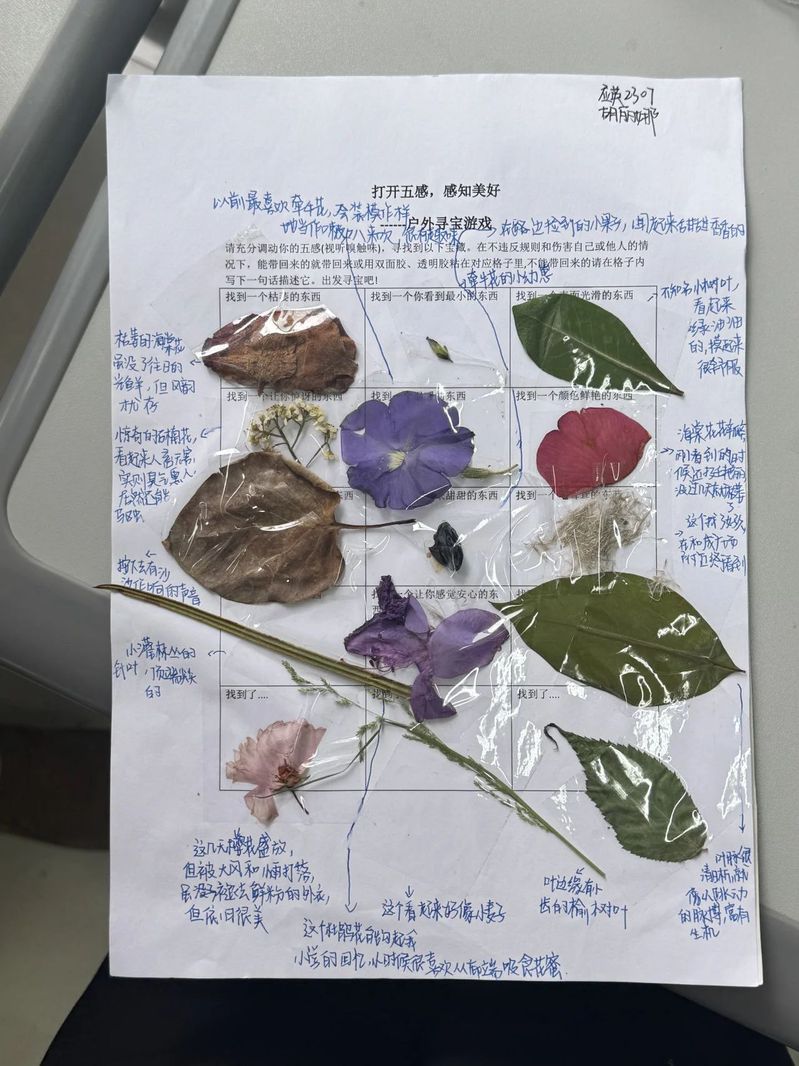 应英2307
胡丽娜
打开五感，感知美好
------户外寻宝游戏
以前最喜欢牵牛花，会装模作样
地当作喇叭来吹
在路边捡到的小果子，闻起来甜甜香香的
请充分调动你的五感(视听嗅触味)，寻找到以下宝藏。在不违反规则和伤害自己或他人的情
况下，能带回来的就带回来或用双面胶、透明胶粘在对应格子里，不能带回来的请在格子内
写下一句话描述它。出发寻宝吧！
牵牛花的小
找到一个枯萎的东西
找到一个你看到最小的东西
找到一个表面光滑的东西
不知名小树叶，
看起来
绿油油
的，摸起来
很舒服
枯萎的海棠花
虽没了往日的
光鲜，但风韵
犹存
找到一个让你惊讶的东西
的东西
找到一个颜色鲜艳的东西
惊奇的石楠花，
看起来人畜无害，
实则臭气熏人
海棠花花瓣
刚看到的时
候还挺艳
没过几天就
了
甜甜的东西
的东西
这个找了好久，
在和成广场
附近终于看到
摸下去有沙
沙作响的声音
找到一个让你感觉安心的东
西
小灌木丛的
针叶，顶端尖尖
的
找到了....
找到
找到了....
这几天樱花盛放，
但被大风和小雨打落，
虽没了褪去鲜粉的外衣，
但依旧很美
这个看起来好像小麦子
这个杜鹃花能勾起我
小学的回忆，小时候很喜欢从
吸食花蜜
叶边缘有小
齿的榆树叶
叶脉很
清晰，就
像小
动
的脉搏，富有
生机